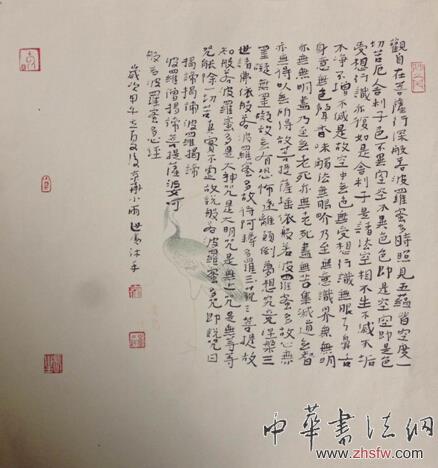 觀自在菩薩行深般若波羅蜜多時照見五蘊皆空度一
切苦厄舍利子色不異空空不異色色即是空空即是色
受想行識亦復如是舍利子是諸法空相不生不滅不垢
不淨不增不減是故空中無色無受想行識無眼耳鼻舌
身意無色聲香味觸法無眼界乃至無意識界無無明
亦無無明盡乃至無老死亦無老死盡無苦集滅道無智
亦無得以無所得故菩提薩埵依般若波羅蜜多故心無
罣礙無罣礙故無有恐怖遠離顛倒夢想究竟涅槃三
世諸佛依般若波羅蜜多故得阿耨多羅三藐三菩提故
知般若波羅蜜多是大神咒是大明咒是無上咒是無等等
咒能除一切苦真實不虛故說般若波羅蜜多咒即說咒曰
揭諦揭諦波羅揭諦
波羅僧揭諦菩提薩婆訶
般若波羅蜜多心經
歲次甲午
中華書法網
www.zhsfw.com